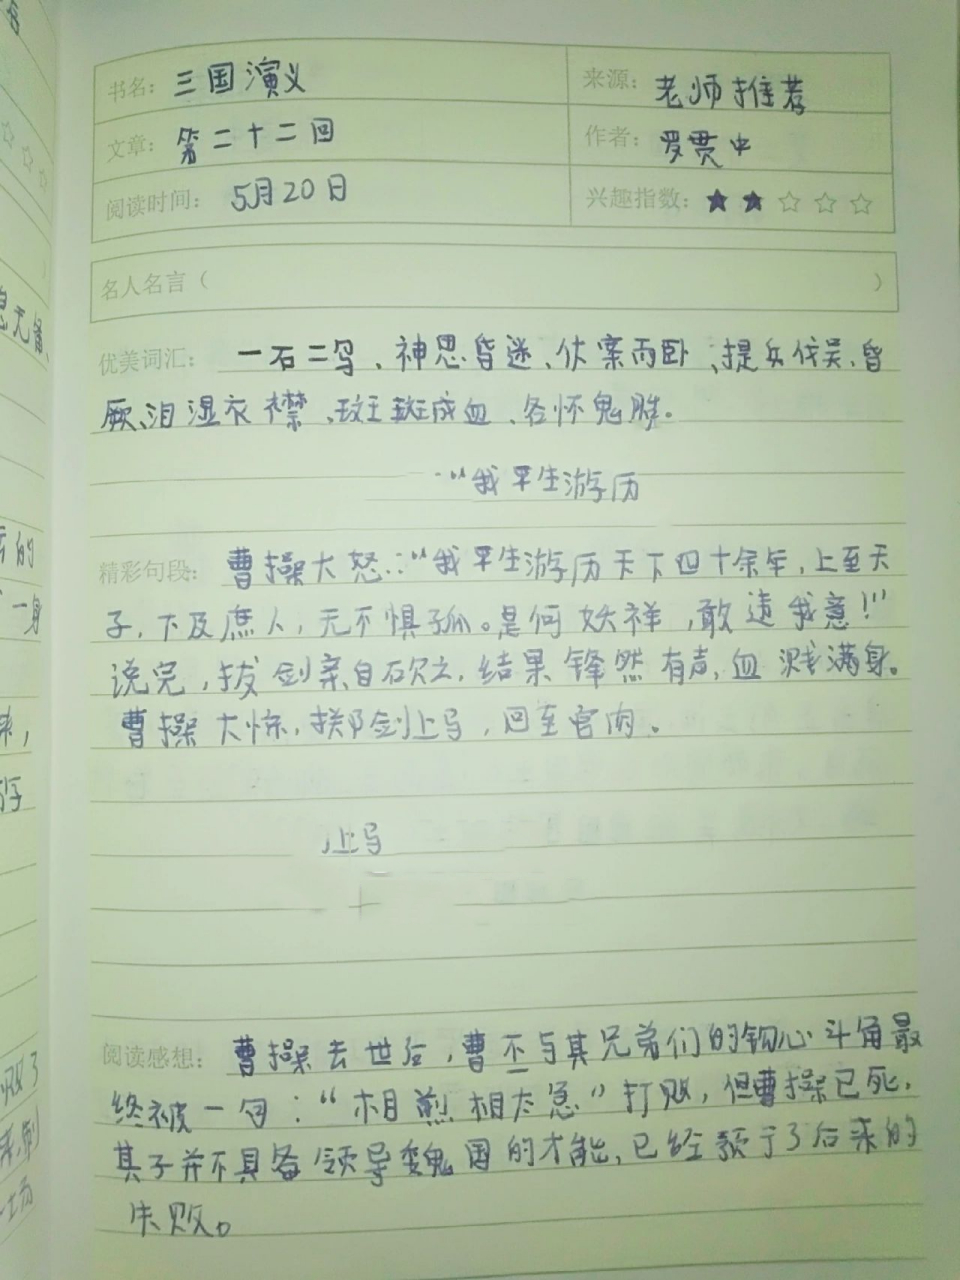 书名：三国演义 来源：老师推荐
文章：第二十二回 作者：罗贯中
阅读时间：5月20日 兴趣指数：★★☆☆☆
名人名言（ ）
优美词汇：一石二鸟、神思昏迷、伏案而卧、提兵伐吴、昏
厥、泪湿衣襟、斑斑成血、各怀鬼胎。
“我平生游历
精彩句段：曹操大怒：“我平生游历天下四十余年，上至天
子，下及庶人，无不惧孤。是何妖祥，敢违我意！”
说完，拔剑亲自砍之，结果锋然有声，血溅满身。
曹操大惊，掷剑上马，回至宫内。
上马
阅读感想：曹操去世后，曹丕与其兄弟们的钩心斗角最
终被一句：“相煎相太急”打败，但曹操已死，
其子并不具备领导魏国的才能，已经预示了后来的
失败。